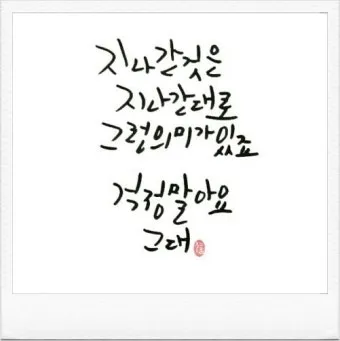 지나간것은
지나간대로
그런의미가있죠
걱정말아요
그대